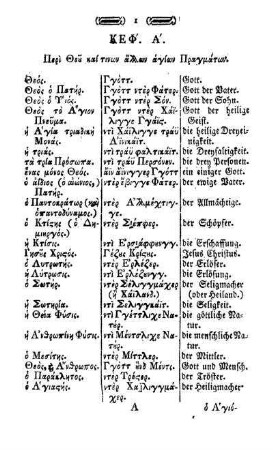 1
ΚΕΦ. Α'.
Περὶ Θεοῦ καί τινων ἄλλων ἁγίων Πραγμάτων.
Θεός. Γγόττ. Gott.
Θεὸς ὁ Πατήρ. Γγὸττ ντὲρ Φάτερ. Gott der Vater.
Θεὸς ὁ Υἱός. Γγὸττ ντὲρ Σόν. Gott der Sohn.
Θεὸς τὸ Ἅγιον Γγὸττ ντὲρ Χάϊ- Gott der heilige
Πνεῦμα. λιγγε Γγάϊς. Geist.
ἡ Ἁγία τριαδικὴ ντὶ Χάϊλιγγε τράϋ die heilige Dreyei-
Μονάς. Ἀϊνικαϊτ. nigkeit.
ἡ τριάς. ντὶ τράϋ φαλτικαϊτ. die Dreyfaltigkeit.
τὰ τρία Πρόσωπα. ντὶ τράϋ Περσόνεν. die drey Personen.
ἕνας μόνος Θεός. ἀϊν ἀϊνιγγερ Γγόττ. ein einiger Gott.
ὁ ἀΐδιος (ὁ αἰώνιος), ντὲρ ἔβιγγε Φάτερ. der ewige Vater.
Πατήρ.
ὁ Παντοκράτωρ (καὶ ντὲρ Ἀλμέχτιγ- der Allmächtige.
ὁ παντοδύναμος.) γε.
ὁ Κτίστης (ὁ Δη- ντὲρ Σιέπφερ. der Schöpfer.
μιουργός.)
ἡ Κτίσις. ντὶ Ἐρσιάφφενγγ. die Erschaffung.
Ἰησοῦς Χριστός. Γέζους Κρίστους. Jesus Christus.
ὁ Λυτρωτής. ντὲρ Ἐρλέζερ. der Erlöser.
ἡ Λύτρωσις. ντὶ Ἐρλέζενγγ. die Erlösung.
ὁ Σωτήρ. ντὲρ Σελιγγμάχερ der Seligmacher
(ἢ Χάϊλανδ.) (oder Heiland.)
ἡ Σωτηρία. ντὶ Σελιγγκαϊτ. die Seligkeit.
ἡ Θεία Φύσις. ντὶ Γγόττλιχε Να- die göttliche Na-
τούρ. tur.
ἡ Ἀνθρωπίνη Φύσις. ντὶ Μένσλιχε Να- die menschliche Na-
τούρ. tur.
ὁ Μεσίτης. ντὲρ Μίττλερ. der Mittler.
Θεὸς, Ἄνθρωπος. Γγὸττ οὒνδ Μένς. Gott und Mensch.
ὁ Παράκλητος. ντὲρ Τρέστερ. der Tröster.
ὁ Ἁγιαστής. ντὲρ Χαϊλιγγμά- der Heiligmacher
χερ.
Α ὁ Ἁγιά-